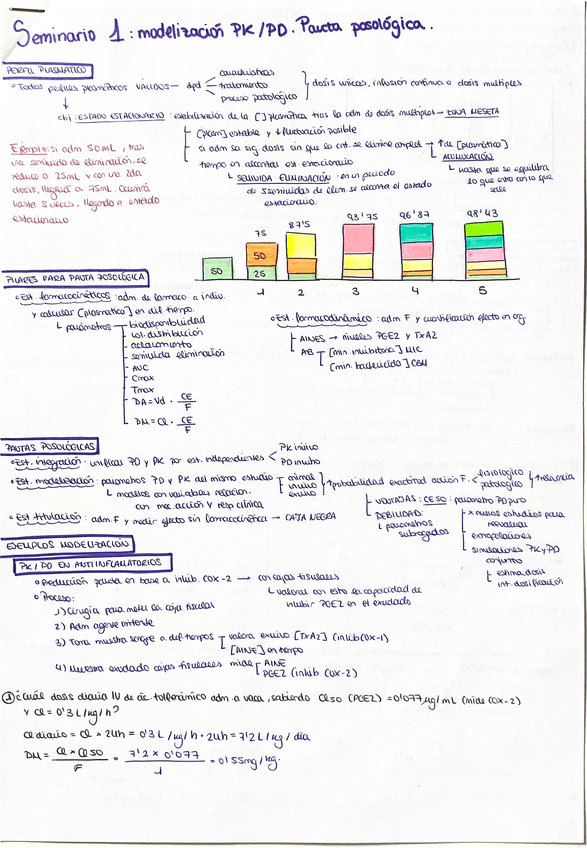 Seminario 1: modelización PK/PD. Pauta posológica.
PERFIL PLASMÁTICO
Todos perfiles plasmáticos VÁLIDOS — dpd
características
tratamiento
proceso patológico
dosis únicas, infusión continua o dosis multiples
obj: ESTADO ESTACIONARIO: estabilización de la [ ] plasmática tras la adm de dosis multiples → ZONA MESETA
[plasm] estable y ↓ fluctuación posible
si adm la sig. dosis sin que la ant. se elimine complet → ↑ de [plasmática]
tiempo en alcanzar est estacionario
ACUMULACIÓN
hasta que se equilibra lo que entra con lo que sale
SEMIVIDA ELIMINACIÓN: en un periodo
de 5 semividas de elim. se alcanza el estado
estacionario.
Ejemplo: si adm 50 mL, tras
una semivida de eliminación, se
reduce a 25mL y con una 2da
dosis, llegará a 75mL. Ocurrirá
hasta 5 veces, llegando a estado
estacionario
75
87'5
93'75
96'87
98'43
50
50
25
1
2
3
4
5
PILARES PARA PAUTA POSOLÓGICA
Est. farmacocinéticos: adm. de fármaco a indiv.
y calcular [plasmática] en dif. tiempo.
parámetros
biodisponibilidad
vol. distribución
aclaramiento
semivida eliminación
AUC
Cmax
Tmax
DA = Vd · CE/F
DM = Cl · CE/F
Est. farmacodinámico: adm F y cuantificación efecto en org.
AINES → niveles PGE2 y TXA2
AB
[min. inhibitoria] MIC
[min. bactericida] CBM
PAUTAS POSOLÓGICAS
Est. integración: unificar PD y PK por est. independientes
PK in vivo
PD in vitro
Est. modelización: parámetros PD y PK del mismo estudio
animal
in vivo
ex vivo
↑ probabilidad exactitud acción F.
fisiológico
patológico
↑ relevancia
modelos con variables relacion.
con mec. acción y resp clínica
VENTAJAS: CE50: parámetro PD puro
DEBILIDAD:
parámetros
subrogados
× nuevos estudios para
reevaluar
extrapolaciones
simulaciones PK y PD
conjuntas
estima dosis
int. dosificación
Est titulación: adm. F y medir efecto sin farmacocinética → CAJA NEGRA
EJEMPLOS MODELIZACIÓN
PK/PD EN ANTIINFLAMATORIOS
Reducción pauta en base a inhib. COX-2 → con cajas tisulares
valorar con esto la capacidad de
inhibir PGE2 en el exudado
Proceso:
1) Cirugía para meter la caja tisular
2) Adm agente irritante
3) Toma muestra sangre a dif tiempos
valora ex vivo [TXA2] (inhib COX-1)
[AINE] en tiempo
4) Muestra exudado cajas tisulares mide
AINE
PGE2 (inhib COX-2)
① ¿cuál dosis diaria IV de ác. tolfenámico adm. a vaca, sabiendo CI50 (PGE2) = 0'077 µg/mL (mide COX-2)
y Cl = 0'3 L/kg/h?
Cl diario = Cl × 24h = 0'3 L/kg/h · 24h = 7'2 L/kg/día
DM = Cl × CI50 / F = 7'2 × 0'077 / 1 = 0'55 mg/kg.